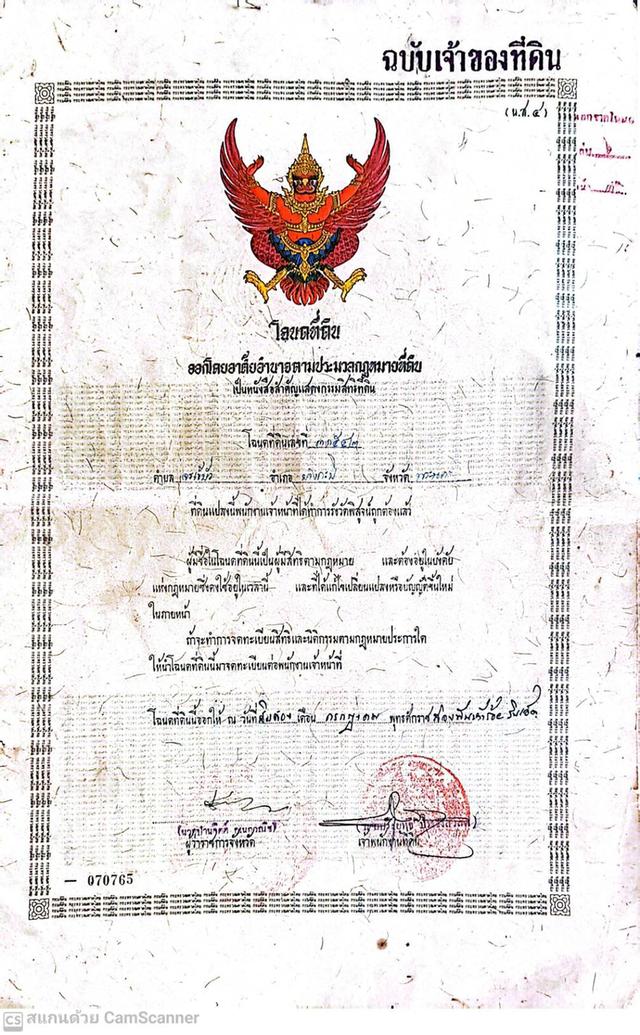 ฉบับเจ้าของที่ดิน
(น.ส.๔)
โฉนดที่ดิน
ออกโดยอาศัยอำนาจตามประมวลกฎหมายที่ดิน
เป็นหนังสือสำคัญแสดงกรรมสิทธิ์ที่ดิน
โฉนดที่ดินเลขที่
ตำบล อำเภอ บางกะปิ จังหวัด พระนคร
ที่ดินแปลงนี้พนักงานเจ้าหน้าที่ได้ทำการรังวัดพิสูจน์ถูกต้องแล้ว
ผู้มีชื่อในโฉนดที่ดินนี้เป็นผู้มีสิทธิตามกฎหมาย และต้องอยู่ในบังคับ
แห่งกฎหมายซึ่งคงใช้อยู่ในเวลานี้ และที่ได้แก้ไขเปลี่ยนแปลงหรือบัญญัติขึ้นใหม่
ในภายหน้า
ถ้าจะทำการจดทะเบียนสิทธิและนิติกรรมตามกฎหมายประการใด
ให้นำโฉนดที่ดินนี้มาจดทะเบียนต่อพนักงานเจ้าหน้าที่
โฉนดที่ดินนี้ออกให้ ณ วันที่ สิบสอง เดือน กรกฎาคม พุทธศักราช สองพันห้าร้อย
ผู้ว่าราชการจังหวัด เจ้าพนักงานที่ดิน
— 070765
CS สแกนด้วย CamScanner